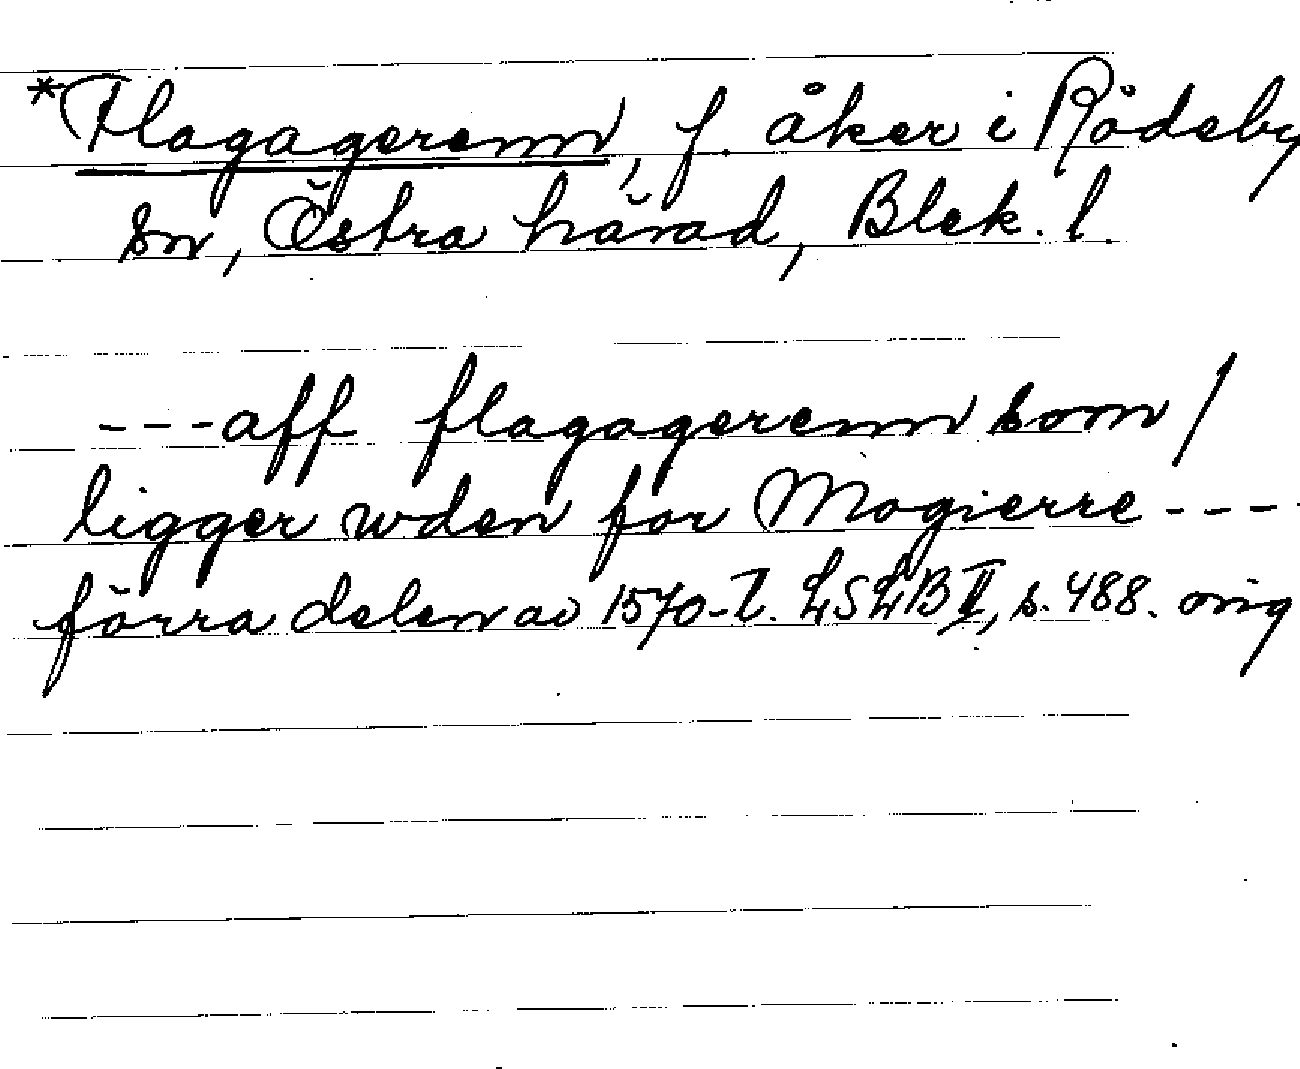 *Flagagerenn, f. åker i Rödeby
sn, Östra härad, Blek. l.
---aff flagagerenn som /
ligger wden for Mogierre---
förra delen av 1570-t. LSLB II, s. 488. orig